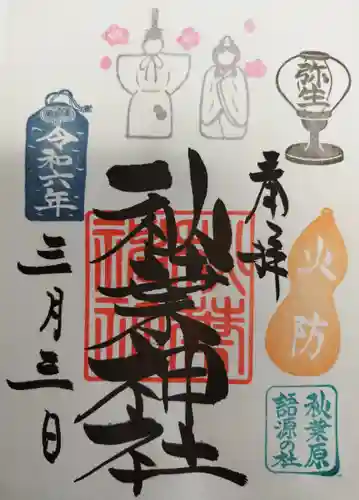 弥生
奉拝
火防
秋葉原
語源の社
秋葉神社
令和六年
三月三日